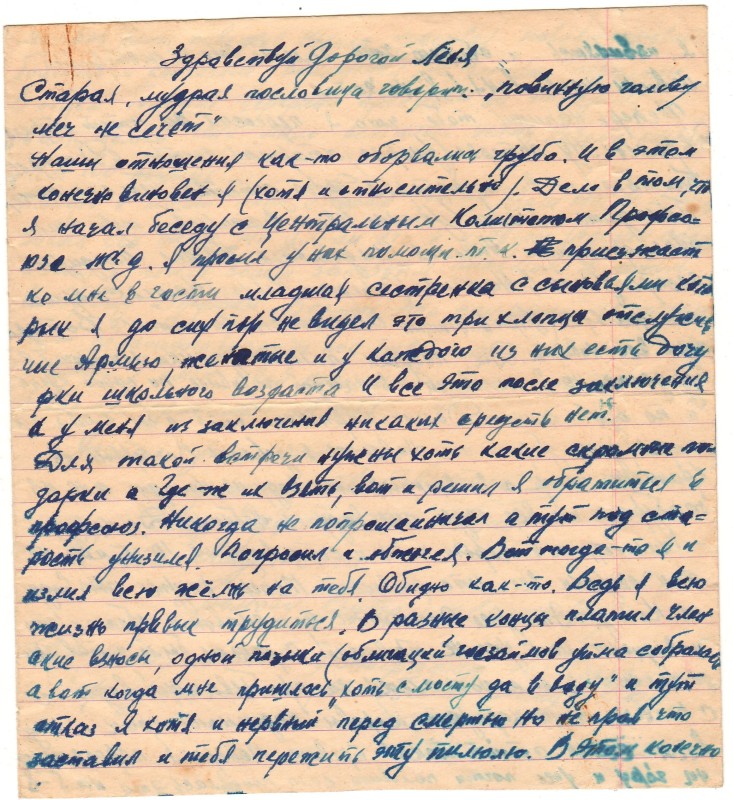 Здравствуй Дорогой Лёня
Старая, мудрая пословица говорит. „повинную голову
меч не сечёт"
Наши отношения как-то оборвались грубо. И в этом
конечно виновен я (хотя и относительно). Дело в том, что
я начал беседу с Центральным Комитетом Профсо-
юза ж.д. я просил у них помощи т.к. приезжает
ко мне в гости младшая сестренка с сыновьями кото
рых я до сих пор не видел это три хлопца отслужив
шие Армию, женатые и у каждого из них есть дочу
рки школьного воздаста И все это после заключения
а у меня из заключения никаких средств нет.
Для такой встречи нужны хоть какие скромные по
дарки а Где-ж их взять, вот и решил я обратиться в
профсоюз. Никогда не попрошайничал а тут под ста-
рость унизился Попросил и обжегся. Вот тогда-то я и
излил всю жёлчь на тебя Обидно как-то. Ведь я всю
жизнь привык трудиться. В разные концы платил член
ские взносы, одной (облигаций госзаймов уйма собралась
а вот когда мне пришлось „хоть с мосту да в воду" и тут
отказ я хотя и нервный перед смертью но не прав что
заставил и тебя пережить эту пилюлю. В этом конечно